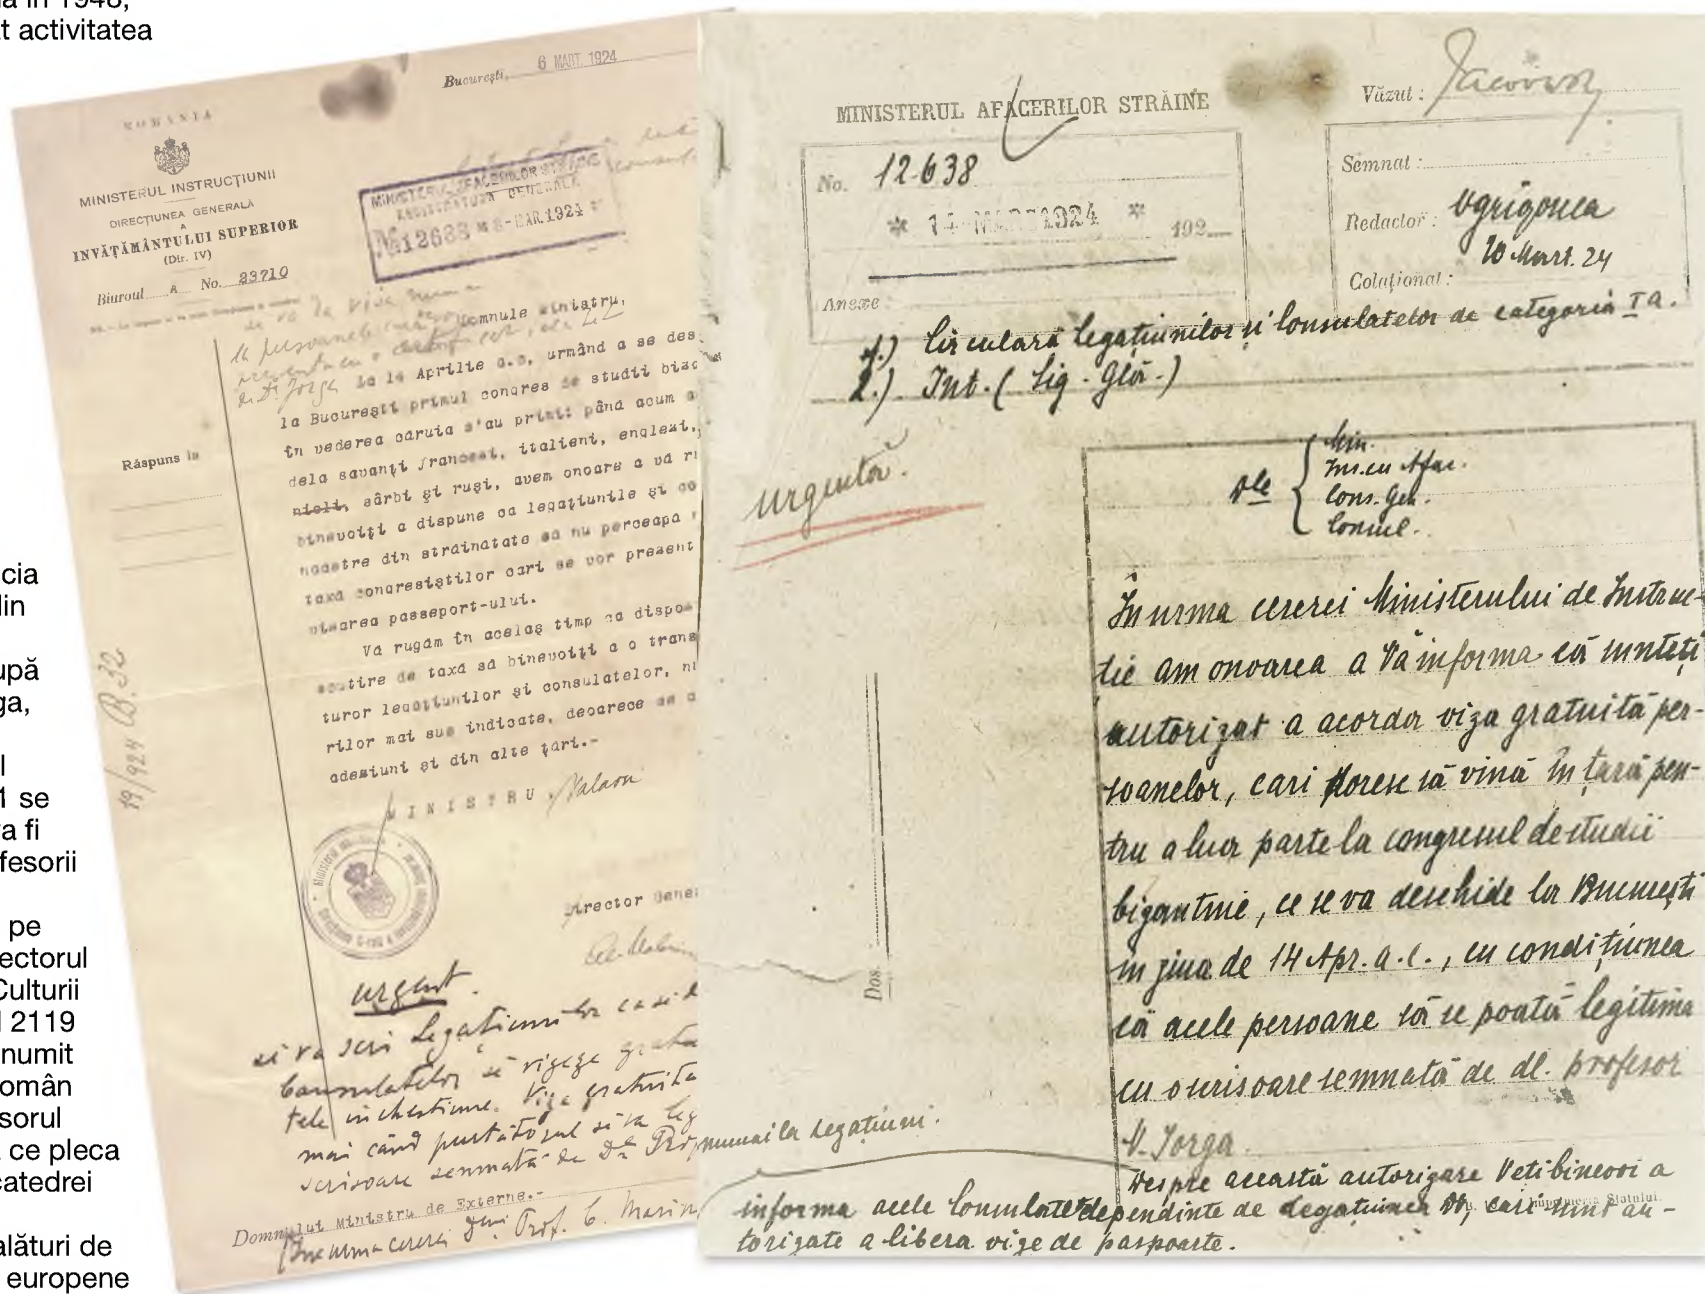 ia în 1948,
t activitatea
cia
din
upă
ga,
l
1 se
a fi
fesorii
pe
ectorul
Culturii
l 2119
numit
omân
sorul
ce pleca
catedrei
alături de
europene
București, 6 MART. 1924
ROMANIA
MINISTERUL INSTRUCȚIUNII
DIRECȚIUNEA GENERALĂ
A
INVĂȚĂMÂNTULUI SUPERIOR
(Dir. IV)
Biuroul A No. 23710
MINISTERUL AFACERILOR STRĂINE
REGISTRATURA GENERALĂ
No 12638 * 8-MAR.1924 *
Răspuns la
19/924 B.32
Domnule Ministru,
La 14 Aprilie a.c. urmând a se des
la București primul congres de studii biza
în vederea căruia s'au primit până acum a
dela savanți francezi, italieni, englezi,
sârbi și ruși, avem onoare a vă r
binevoiți a dispune ca legațiunile și co
noastre din străinatate să nu perceapă
taxă congresiștilor cari se vor present
vizarea passeport-ului.
Vă rugăm în acelaș timp ca dispo
scutire de taxă să binevoiți a o trans
turor legațiunilor și consulatelor, n
rilor mai sus indicate, deoarece se a
adesiuni și din alte țări.-
MINISTRU,
Director Gene
urgent.
se va scri Legațiunilor ca și
Consulatelor să vizeze gratu
tele în chestiune. Viza gratuită
mai când purtătorul se va leg
scrisoare semnată de Dl Pro
Domnului Ministru de Externe.-
În urma cererei Prof. C. Marin
MINISTERUL AFACERILOR STRĂINE
No. 12.638
* 14 MART 1924 * 192
Anexe :
Văzut :
Semnat :
Redactor : VGrigorcea
10 Mart. 24
Colaționat :
1.) Circulară legațiunilor și Consulatelor de categoria I a.
2.) Int. (Sig. Glă.)
urgentă.
Dle
Min.
Ins. cu Afac.
Cons. Gen.
Consul.
În urma cererei Ministerului de Instruc-
ție am onoarea a Vă informa că sunteți
autorizat a acorda viza gratuită per-
soanelor, cari doresc să vină în țară pen-
tru a lua parte la congresul de studii
bizantine, ce se va deschide la București
în ziua de 14 Apr. a.c., cu condițiunea
că acele persoane să se poată legitima
cu o scrisoare semnată de dl. profesor
N. Iorga.
Dos.
numai la Legațiuni.
Despre această autorizare Veți binevoi a
informa acele Consulate dependinte de Legațiunea Dv, cari sunt au-
torizate a libera vize de pașpoarte.
Imprimeria Statului.